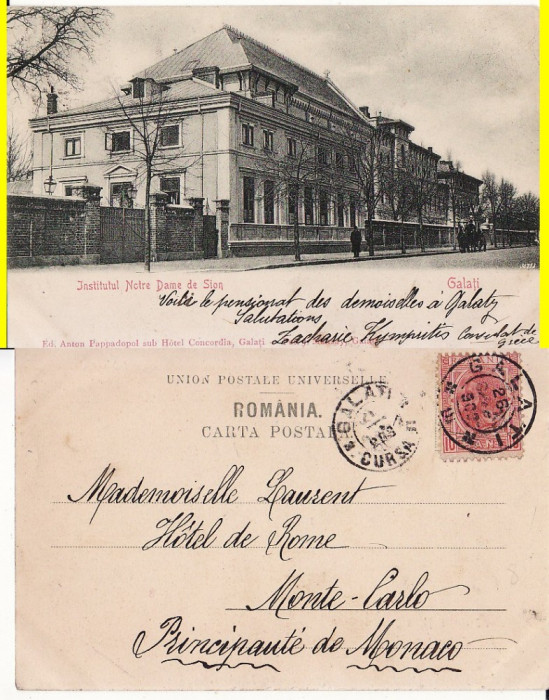 Institutul Notre Dame de Sion
Galați
Voilà le pensionat des demoiselles à Galatz
Salutations
Zacharie Kympritis Consulat de
Grèce
Ed. Anton Pappadopol sub Hôtel Concordia, Galați
UNION POSTALE UNIVERSELLE
ROMÂNIA.
CARTA POSTALA
GALATI
CURSA
GALATI
Mademoiselle Laurent
Hôtel de Rome
Monte-Carlo
Principauté de Monaco